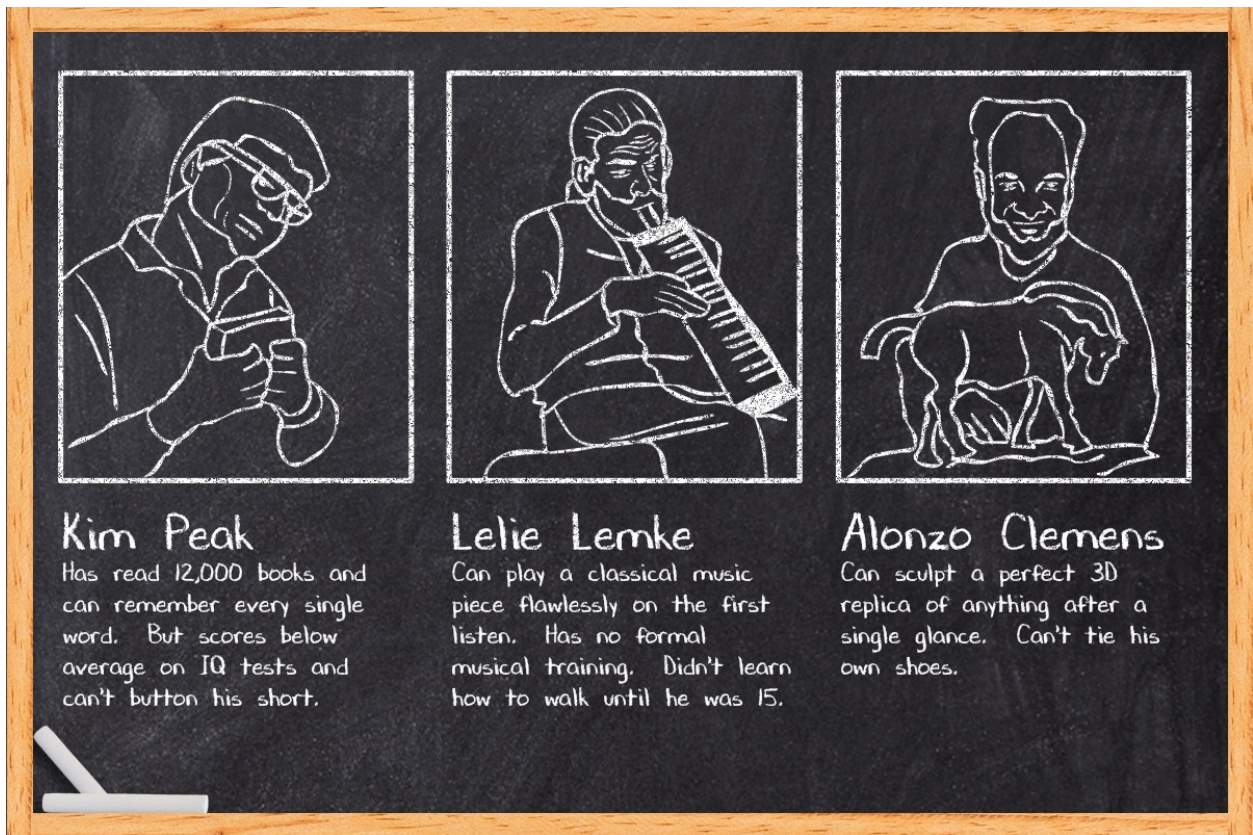 Kim Peak
Has read 12,000 books and
can remember every single
word. But scores below
average on IQ tests and
can't button his short.
Lelie Lemke
Can play a classical music
piece flawlessly on the first
listen. Has no formal
musical training. Didn't learn
how to walk until he was 15.
Alonzo Clemens
Can sculpt a perfect 3D
replica of anything after a
single glance. Can't tie his
own shoes.